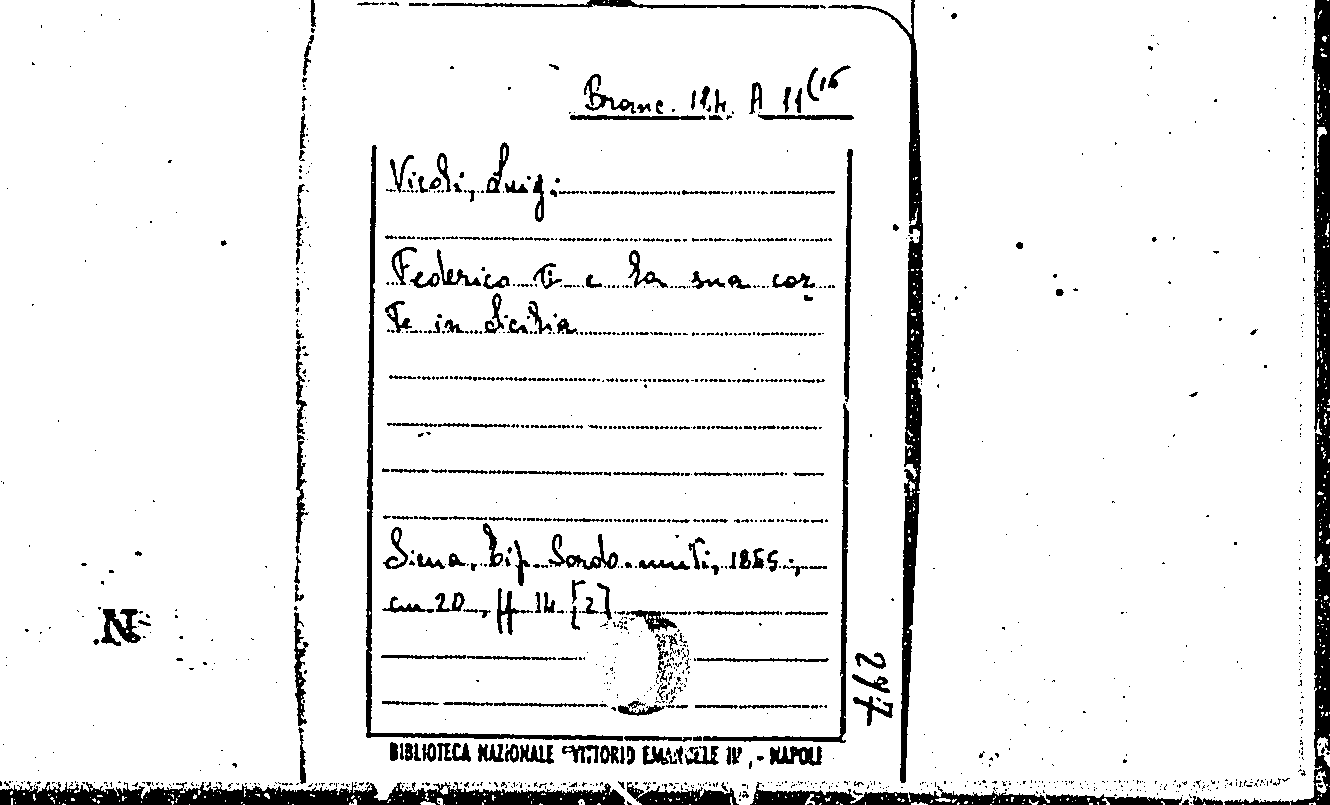 Branc. 124 A 11(15
Vicoli, Luigi
Federico II e la sua cor
te in Sicilia
Siena, Tip. Sordo-muti, 1885;
cm 20, pp 14 [2]
297
N
BIBLIOTECA NAZIONALE "VITTORIO EMANUELE III", - NAPOLI